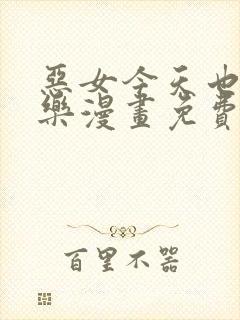 惡女今天也
樂漫畫免費
百里不器